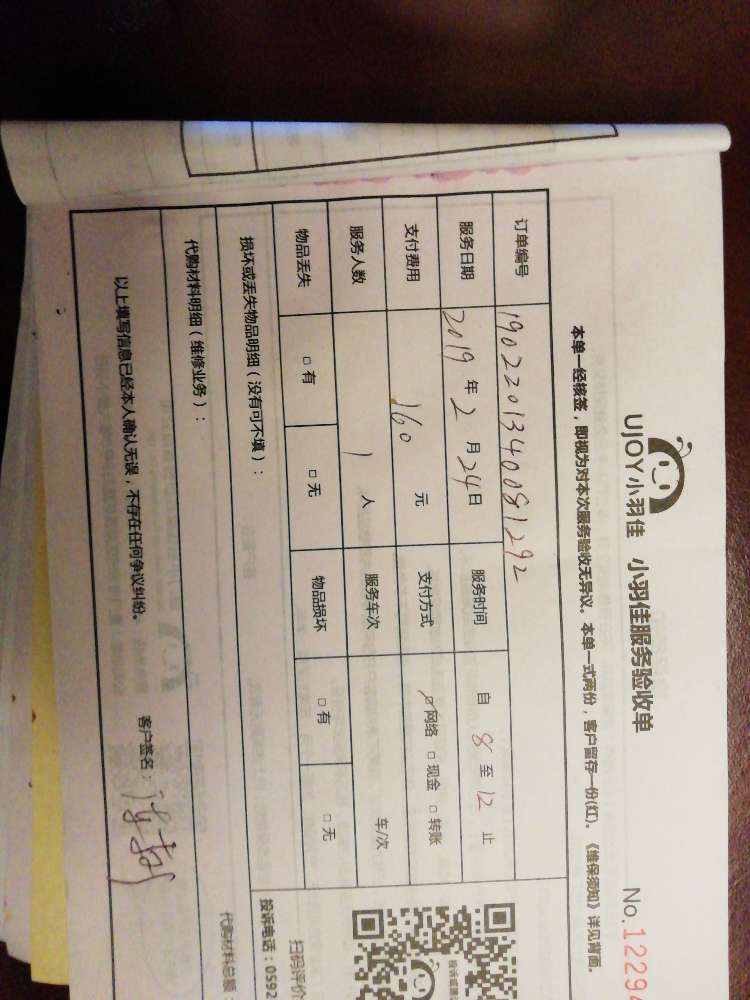 UJOY小羽佳 小羽佳服务验收单
No.12294
本单一经核签，即视为对本次服务验收无异议。本单一式两份，客户留存一份(红)。《维保须知》详见背面。
订单编号 1902201340081292
服务日期 2019 年 2 月 24 日 服务时间 自 8 至 12 止
支付费用 160 元 支付方式 ☑网络 □现金 □转账
服务人数 1 人 服务车次 车/次
物品丢失 □有 □无 物品损坏 □有 □无
损坏或丢失物品明细（没有可不填）：
代购材料明细（维修业务）：
以上填写信息已经本人确认无误，不存在任何争议纠纷。
客户签名：
扫码评价
投诉电话：0592
代购材料总额：